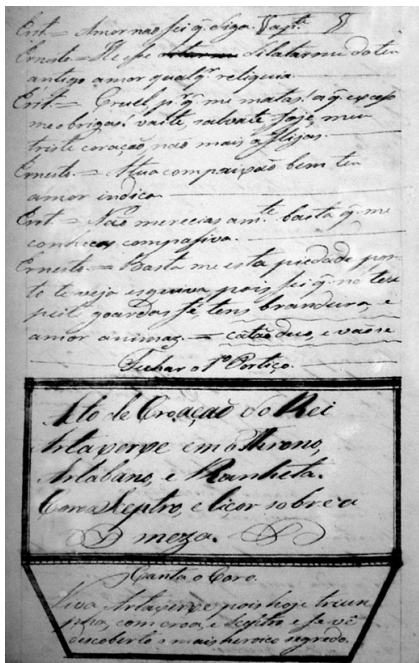 Erit.= Amor não sei q. diga. [[apte. ]]
Ernesto = Dilatarme do teu
antigo amor qualqr. reliquia.
Erit.= Cruel, pr. q. me matas! a q. excesso
me obrigas! vaite, salvate, foje, meu
triste coração, não mais aflijas.
Ernesto.= A tua compaixão bem teu
amor indica.
Erit.= Não merecias amte. basta q. me
conheças compasiva.
Ernesto = Basta me esta piedade, por
te veja esquiva pois sei q. no teu
peito goardas fé, tens brandura, e
amor animas.= catão duo, e vãose
Fechar o 1º Portiço.
Ato de Croação do Rei
Artaxerxe em o Throno,
Artabano, e Ranbieta.
Coroa Sceptro, e licor sobre a
meza.
Canta o Coro.
Viva Artaxerxe pois hoje triun
pha, com croa, e sceptro e se vê
encoberto o mais heroico segredo.